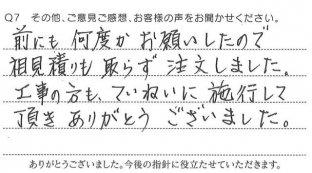 Q7 その他、ご意見ご感想、お客様の声をお聞かせください。
前にも 何度か お願いしたので
相見積りも 取らず 注文しました。
工事の方も、ていねいに 施行して
頂き ありがとう ございました。
ありがとうございました。今後の指針に役立たせていただきます。